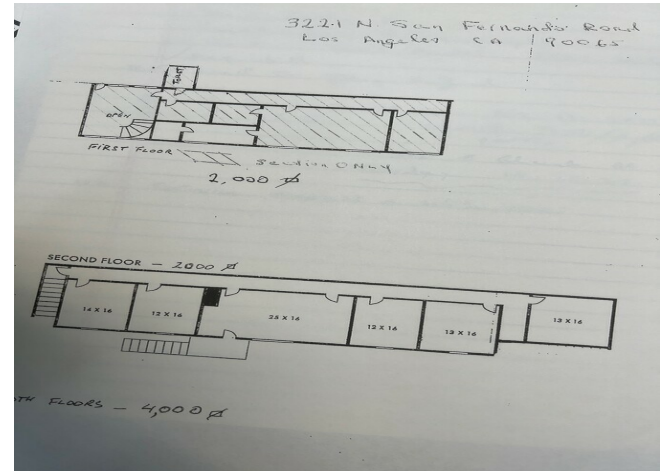 3221 N San Fernando Road
Los Angeles CA 90065
TOILET
OPEN
FIRST FLOOR
Section ONLY
2,000 ⌀
SECOND FLOOR — 2000 ⌀
14 X 16
12 X 16
25 X 16
12 X 16
13 X 16
13 X 16
FLOORS — 4,000 ⌀